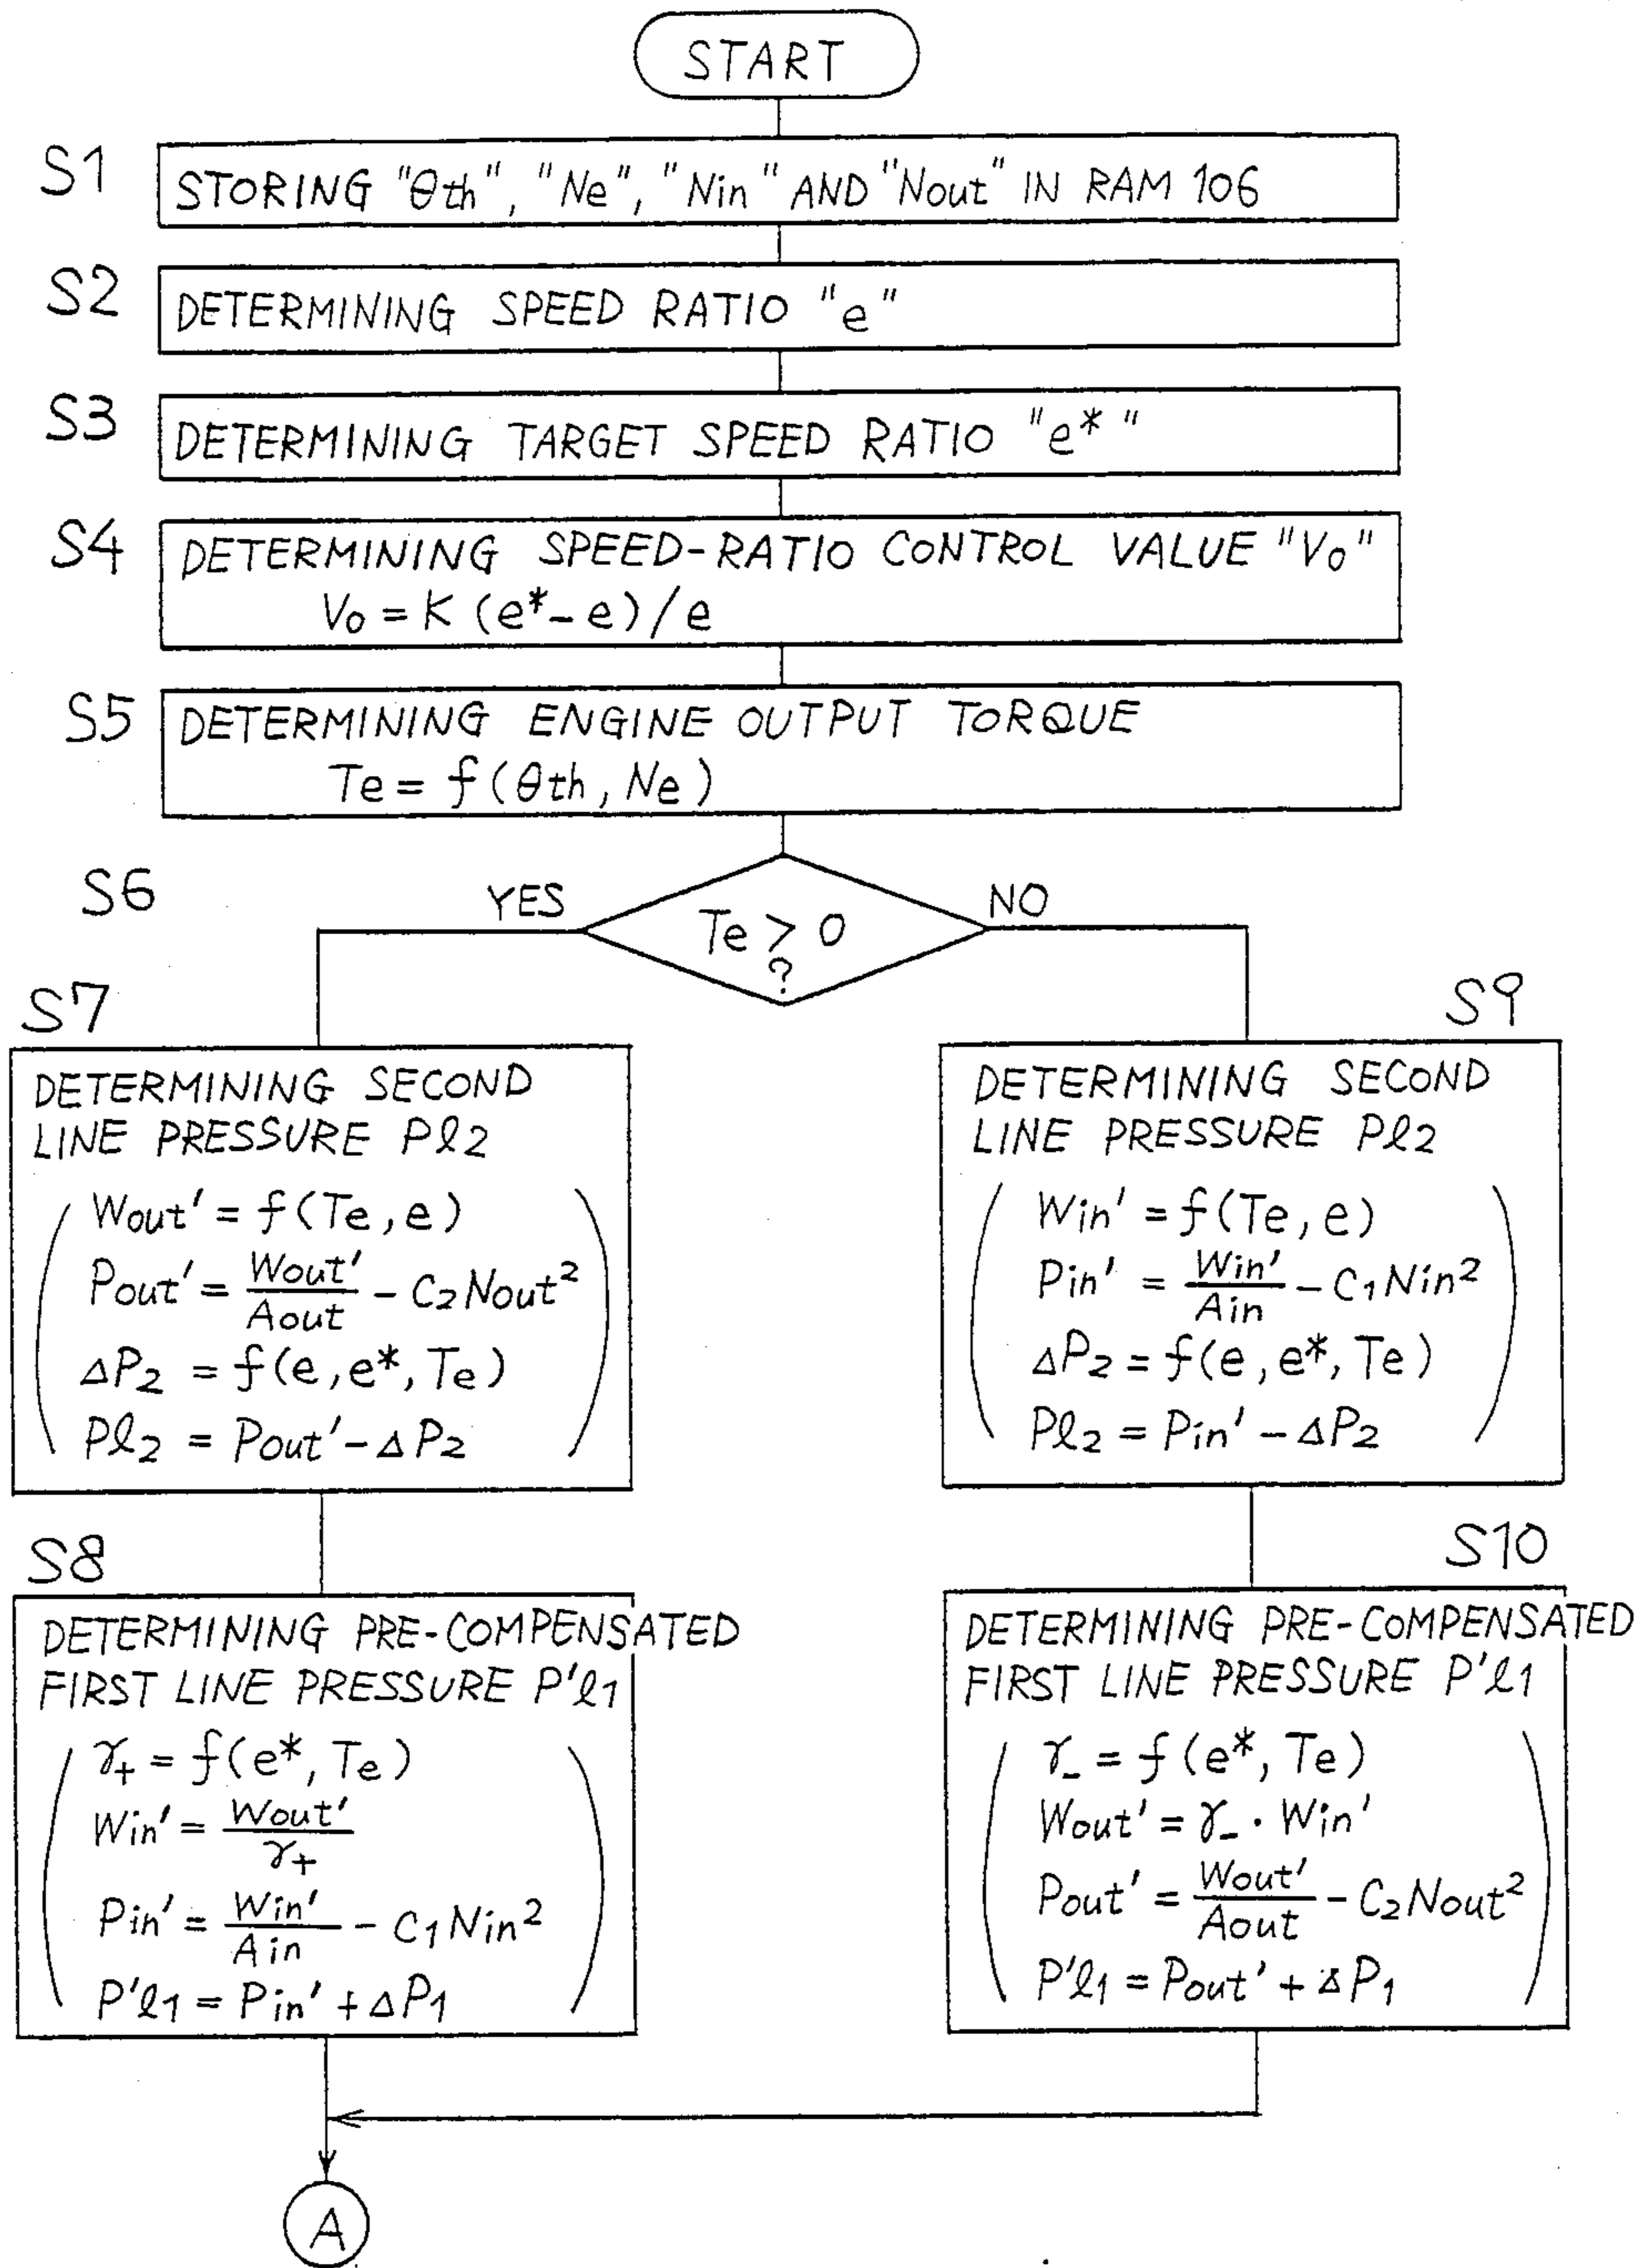 START
S1
STORING "θth", "Ne", "Nin" AND "Nout" IN RAM 106
S2
DETERMINING SPEED RATIO "e"
S3
DETERMINING TARGET SPEED RATIO "e*"
S4
DETERMINING SPEED-RATIO CONTROL VALUE "V₀"
V₀ = K (e* - e) / e
S5
DETERMINING ENGINE OUTPUT TORQUE
Te = f (θth, Ne)
S6
YES
Te > 0
?
NO
S7
DETERMINING SECOND
LINE PRESSURE Pℓ2
Wout' = f(Te, e)
Pout' = Wout'/Aout - C₂Nout²
ΔP₂ = f(e, e*, Te)
Pℓ₂ = Pout' - ΔP₂
S9
DETERMINING SECOND
LINE PRESSURE Pℓ2
Win' = f(Te, e)
Pin' = Win'/Ain - C₁Nin²
ΔP₂ = f(e, e*, Te)
Pℓ₂ = Pin' - ΔP₂
S8
DETERMINING PRE-COMPENSATED
FIRST LINE PRESSURE P'ℓ1
γ₊ = f(e*, Te)
Win' = Wout'/γ₊
Pin' = Win'/Ain - C₁Nin²
P'ℓ₁ = Pin' + ΔP₁
S10
DETERMINING PRE-COMPENSATED
FIRST LINE PRESSURE P'ℓ1
γ₋ = f(e*, Te)
Wout' = γ₋ · Win'
Pout' = Wout'/Aout - C₂Nout²
P'ℓ₁ = Pout' + ΔP₁
A